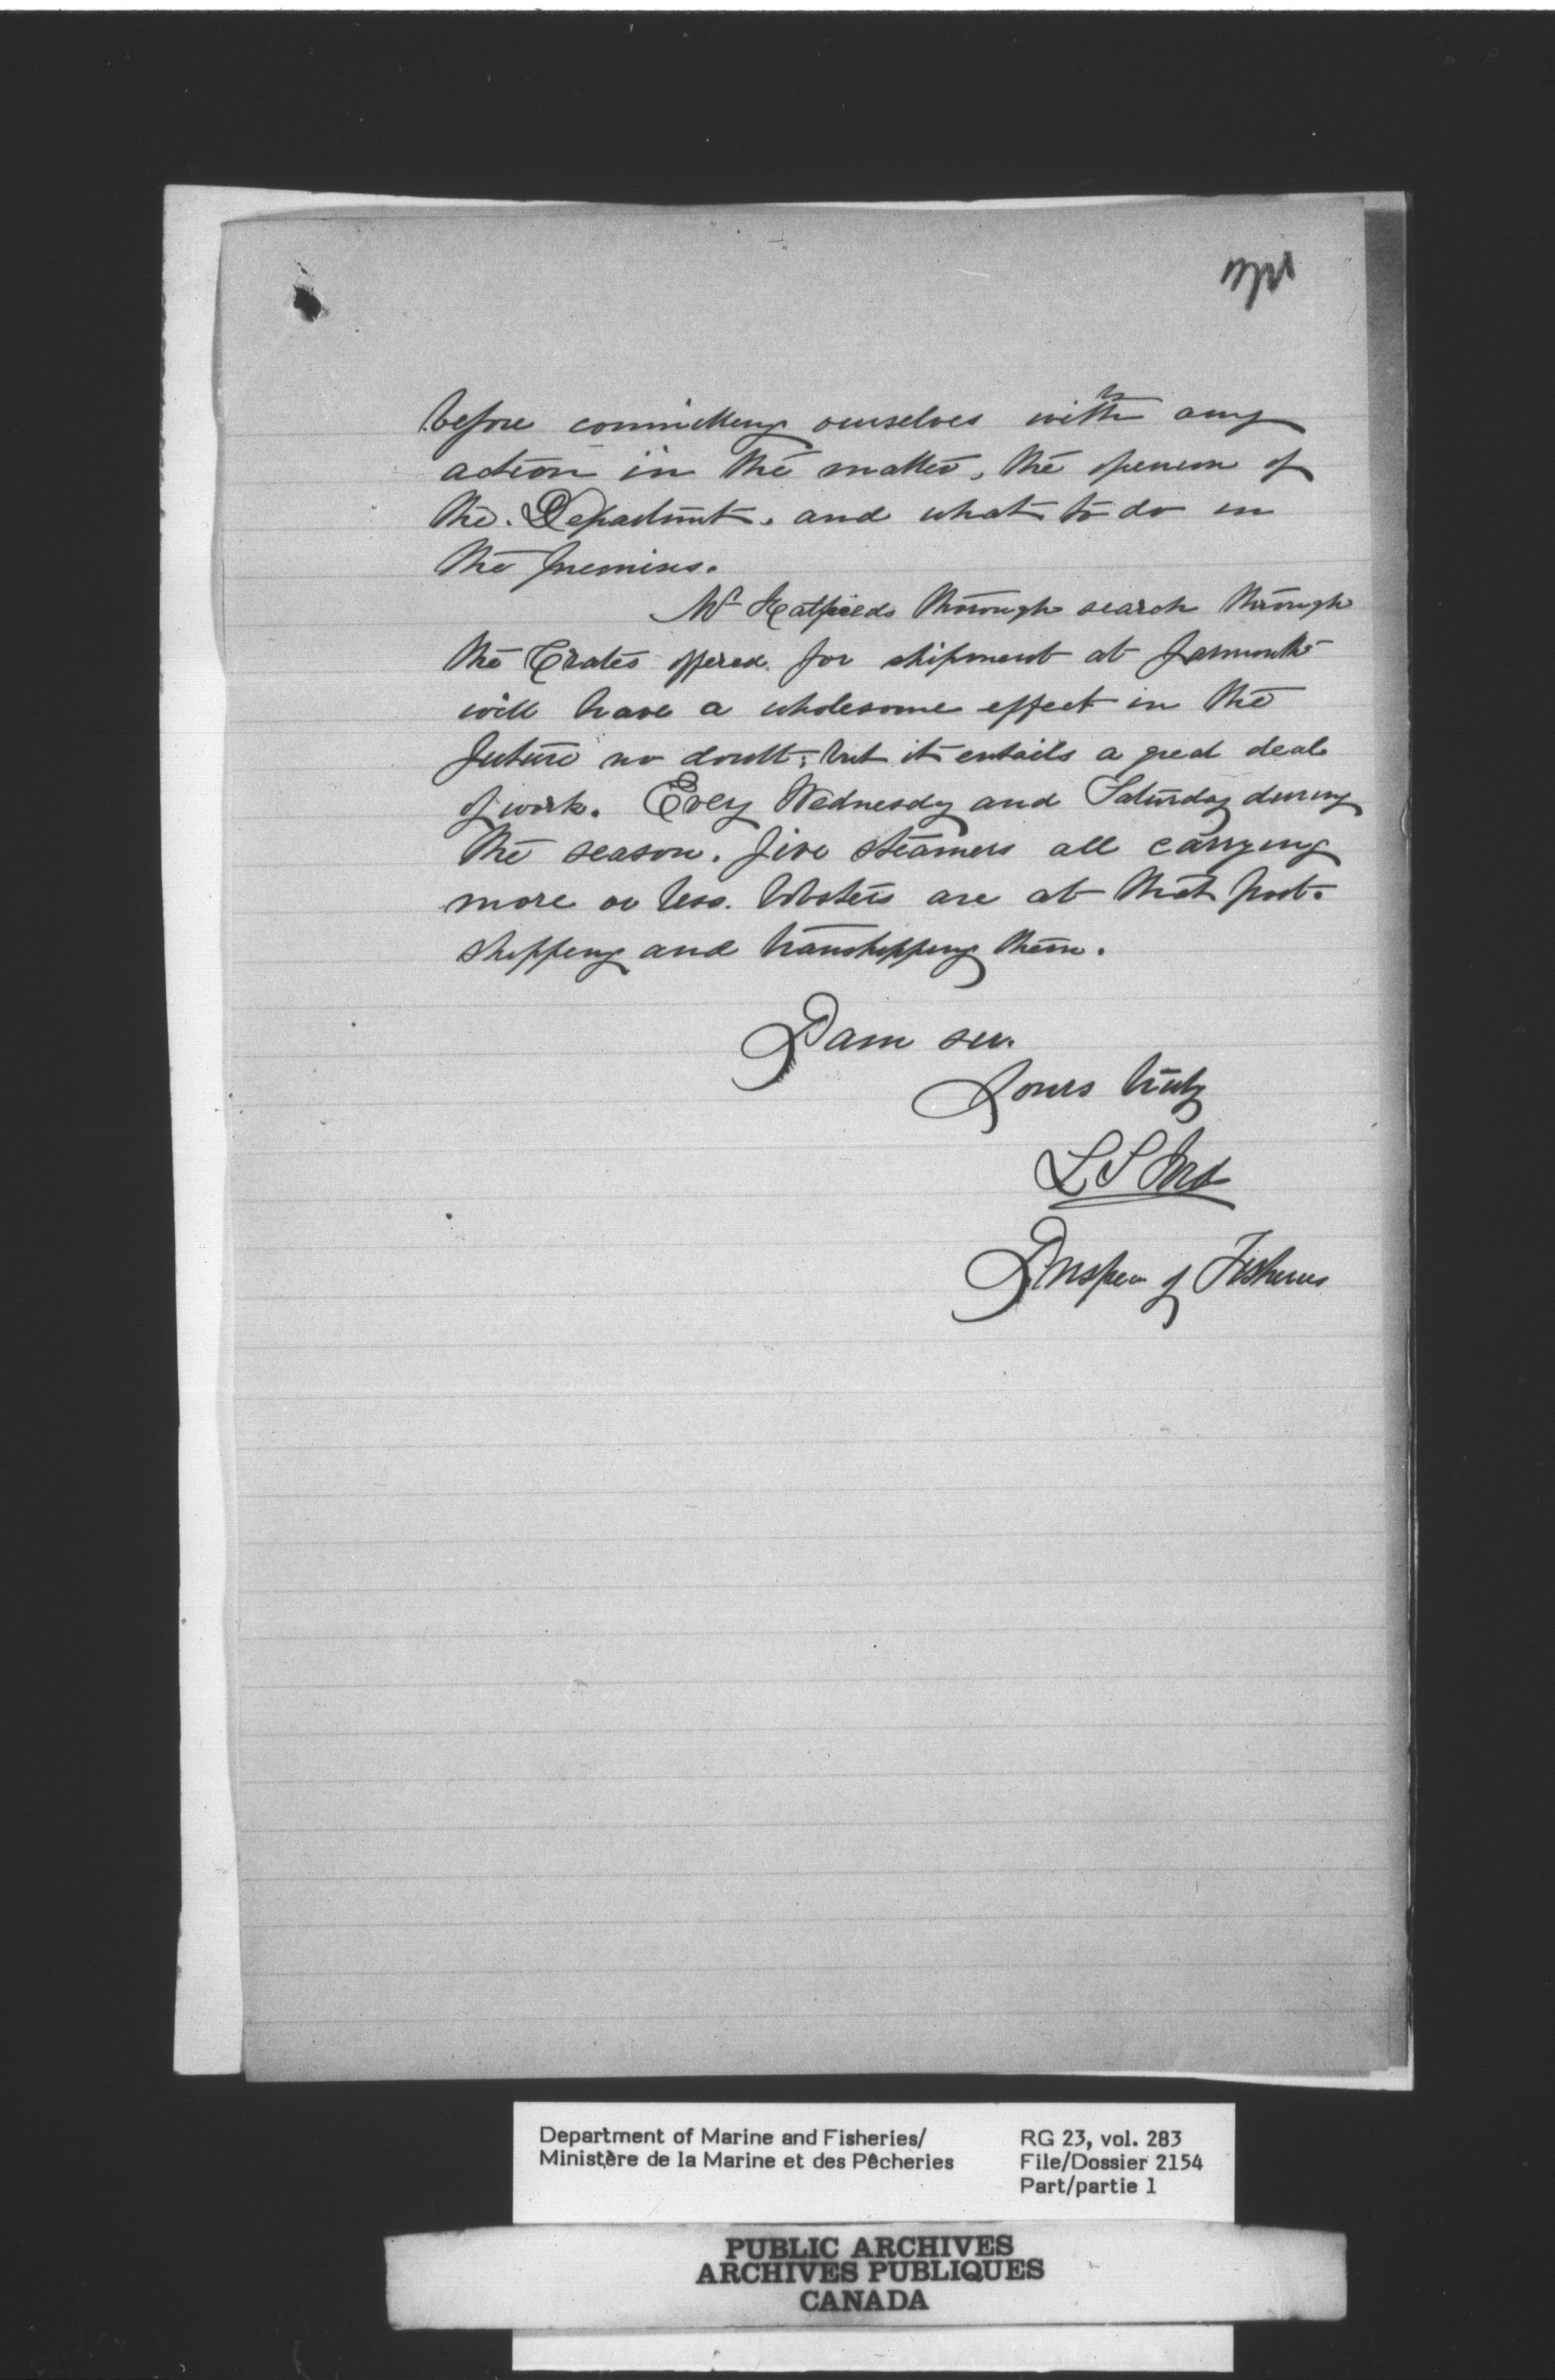 before committing ourselves with to any
action in the matter, the openion of
the Department. and what to do in
the premises.
Mr Hatfields thorough search through
the Crates offered for shipment at Yarmouth
will have a wholesome effect in the
future no doubt; but it entails a great deal
of work. Every Wednesday and Saturday during
the season. five steamers all carrying
more or less. lobsters are at that port.
shipping and transhipping them.
I am sir.
Yours truly
L S Ford
Inspector of Fisheries
Department of Marine and Fisheries/
Ministère de la Marine et des Pêcheries
RG 23, vol. 283
File/Dossier 2154
Part/partie 1
PUBLIC ARCHIVES
ARCHIVES PUBLIQUES
CANADA